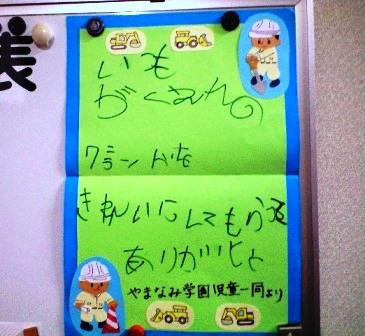 様
いつも
がくえんの
グランドを
きれいにしてもらって
ありがとう
やまなみ学園児童一同より